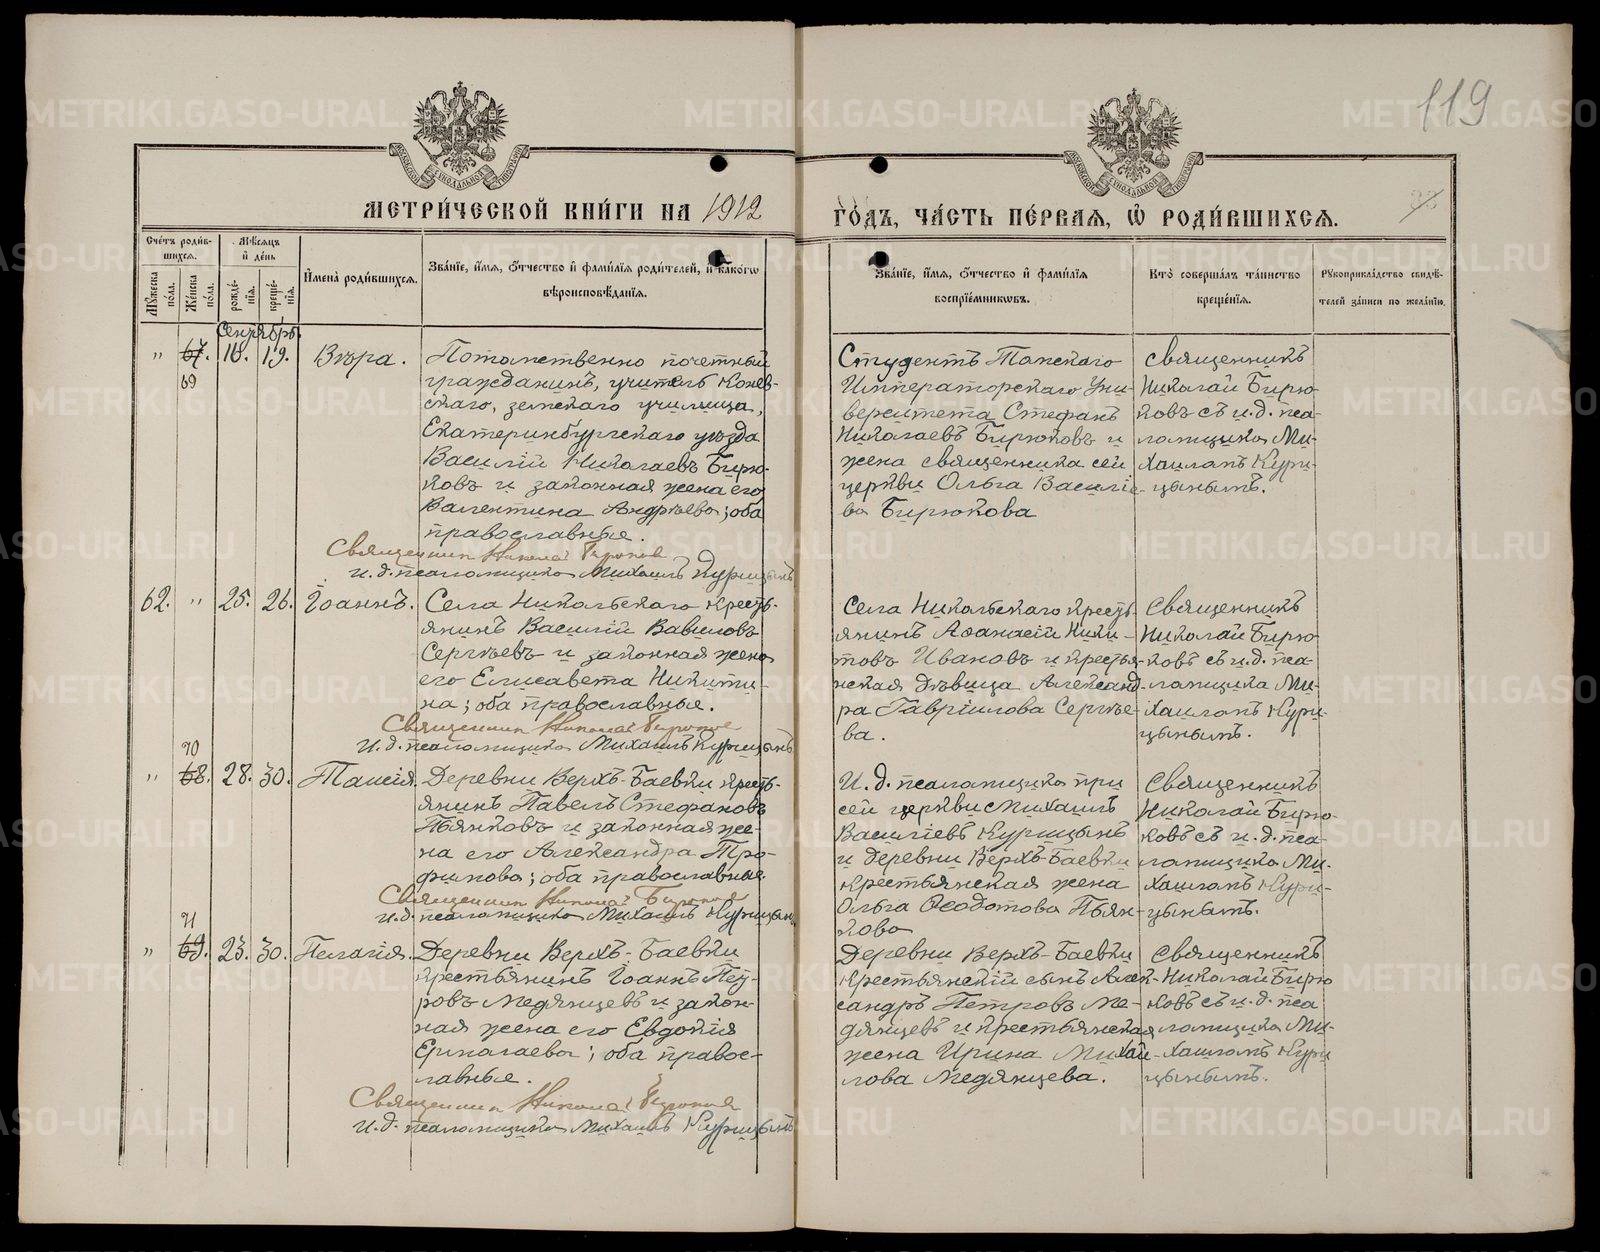 119
МЕТРИЧЕСКОЙ КНИГИ НА 1912
ГОДЪ, ЧАСТЬ ПЕРВАЯ, Ѡ РОДИВШИХСЯ.
Счетъ родив-
шихся.
Мѣсяцъ
и день
Мужеска
пола.
Женска
пола.
рожде-
нія.
креще-
нія.
Имена родившихся.
Званіе, имя, отчество и фамилія родителей, и какого
вѣроисповѣданія.
Званіе, имя, отчество и фамилія
воспріемниковъ.
Кто совершалъ таинство
крещенія.
Рукоприкладство свидѣ-
телей записи по желанію.
Сентябрь.
" 67. 16. 19. Вѣра.
69
Потомственно почетный
гражданинъ, учитель Конев-
скаго, земскаго училища,
Екатеринбургскаго уѣзда
Василій Николаевъ Бирю-
ковъ и законная жена его
Валентина Андреева; оба
православные.
Священник Николай Бирюков
и.д. псаломщика Михаилъ Курицынъ
Студентъ Томскаго
Императорскаго Уни-
верситета Стефанъ
Николаевъ Бирюковъ и
жена священника сей
церкви Ольга Василіе-
ва Бирюкова
Священникъ
Николай Бирю-
ковъ съ и.д. пса-
ломщика Ми-
хаиломъ Кури-
цынымъ.
62. " 25. 26. Іоаннъ.
Села Никольскаго кресть-
янинъ Василій Вавиловъ
Сергѣевъ и законная жена
его Елисавета Никити-
на; оба православные.
Священник Николай Бирюков
И.д. псаломщика Михаилъ Курицынъ
Села Никольскаго кресть-
янинъ Аѳанасій Ники-
товъ Ивановъ и крестья-
нская дѣвица Александ-
ра Гавріилова Сергѣе-
ва.
Священникъ
Николай Бирю-
ковъ съ и.д. пса-
ломщика Ми-
хаиломъ Кури-
цынымъ.
70
" 68. 28. 30. Таисія.
Деревни Верхъ-Баевки кресть-
янинъ Павелъ Стефановъ
Пьянковъ и законная же-
на его Александра Тро-
фимова; оба православные.
Священник Николай Бирюков
и.д. псаломщика Михаилъ Курицынъ
И.д. псаломщика при
сей церкви Михаилъ
Василіевъ Курицынъ
и деревни Верхъ-Баевки
крестьянская жена
Ольга Ѳеодотова Пьян-
кова
Священникъ
Николай Бирю-
ковъ съ и.д. пса-
ломщика Ми-
хаиломъ Кури-
цынымъ.
71
" 69. 23. 30. Пелагія.
Деревни Верхъ-Баевки
крестьянинъ Іоаннъ Пет-
ровъ Медянцевъ и закон-
ная жена его Евдокія
Ермолаева; оба правос-
лавные.
Священник Николай Бирюков
и.д. псаломщика Михаилъ Курицынъ
Деревни Верхъ-Баевки
крестьянскій сынъ Алек-
сандръ Петровъ Ме-
дянцевъ и крестьянская
жена Ирина Михай-
лова Медянцева.
Священникъ
Николай Бирю
ковъ съ и.д. пса
ломщика Ми-
хаиломъ Кури
цынымъ.
METRIKI.GASO-URAL.RU